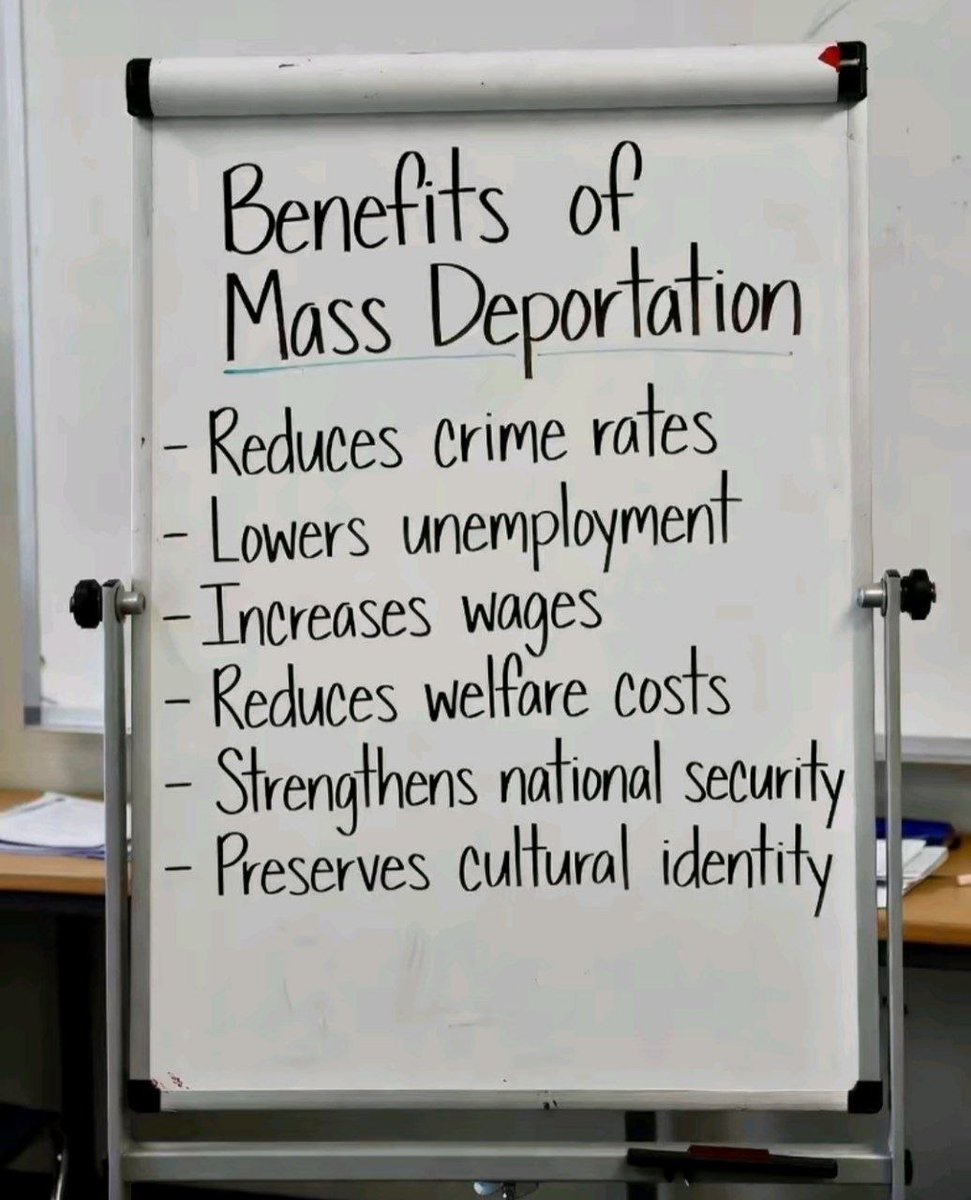 Benefits of
Mass Deportation
- Reduces crime rates
- Lowers unemployment
- Increases wages
- Reduces welfare costs
- Strengthens national security
- Preserves cultural identity